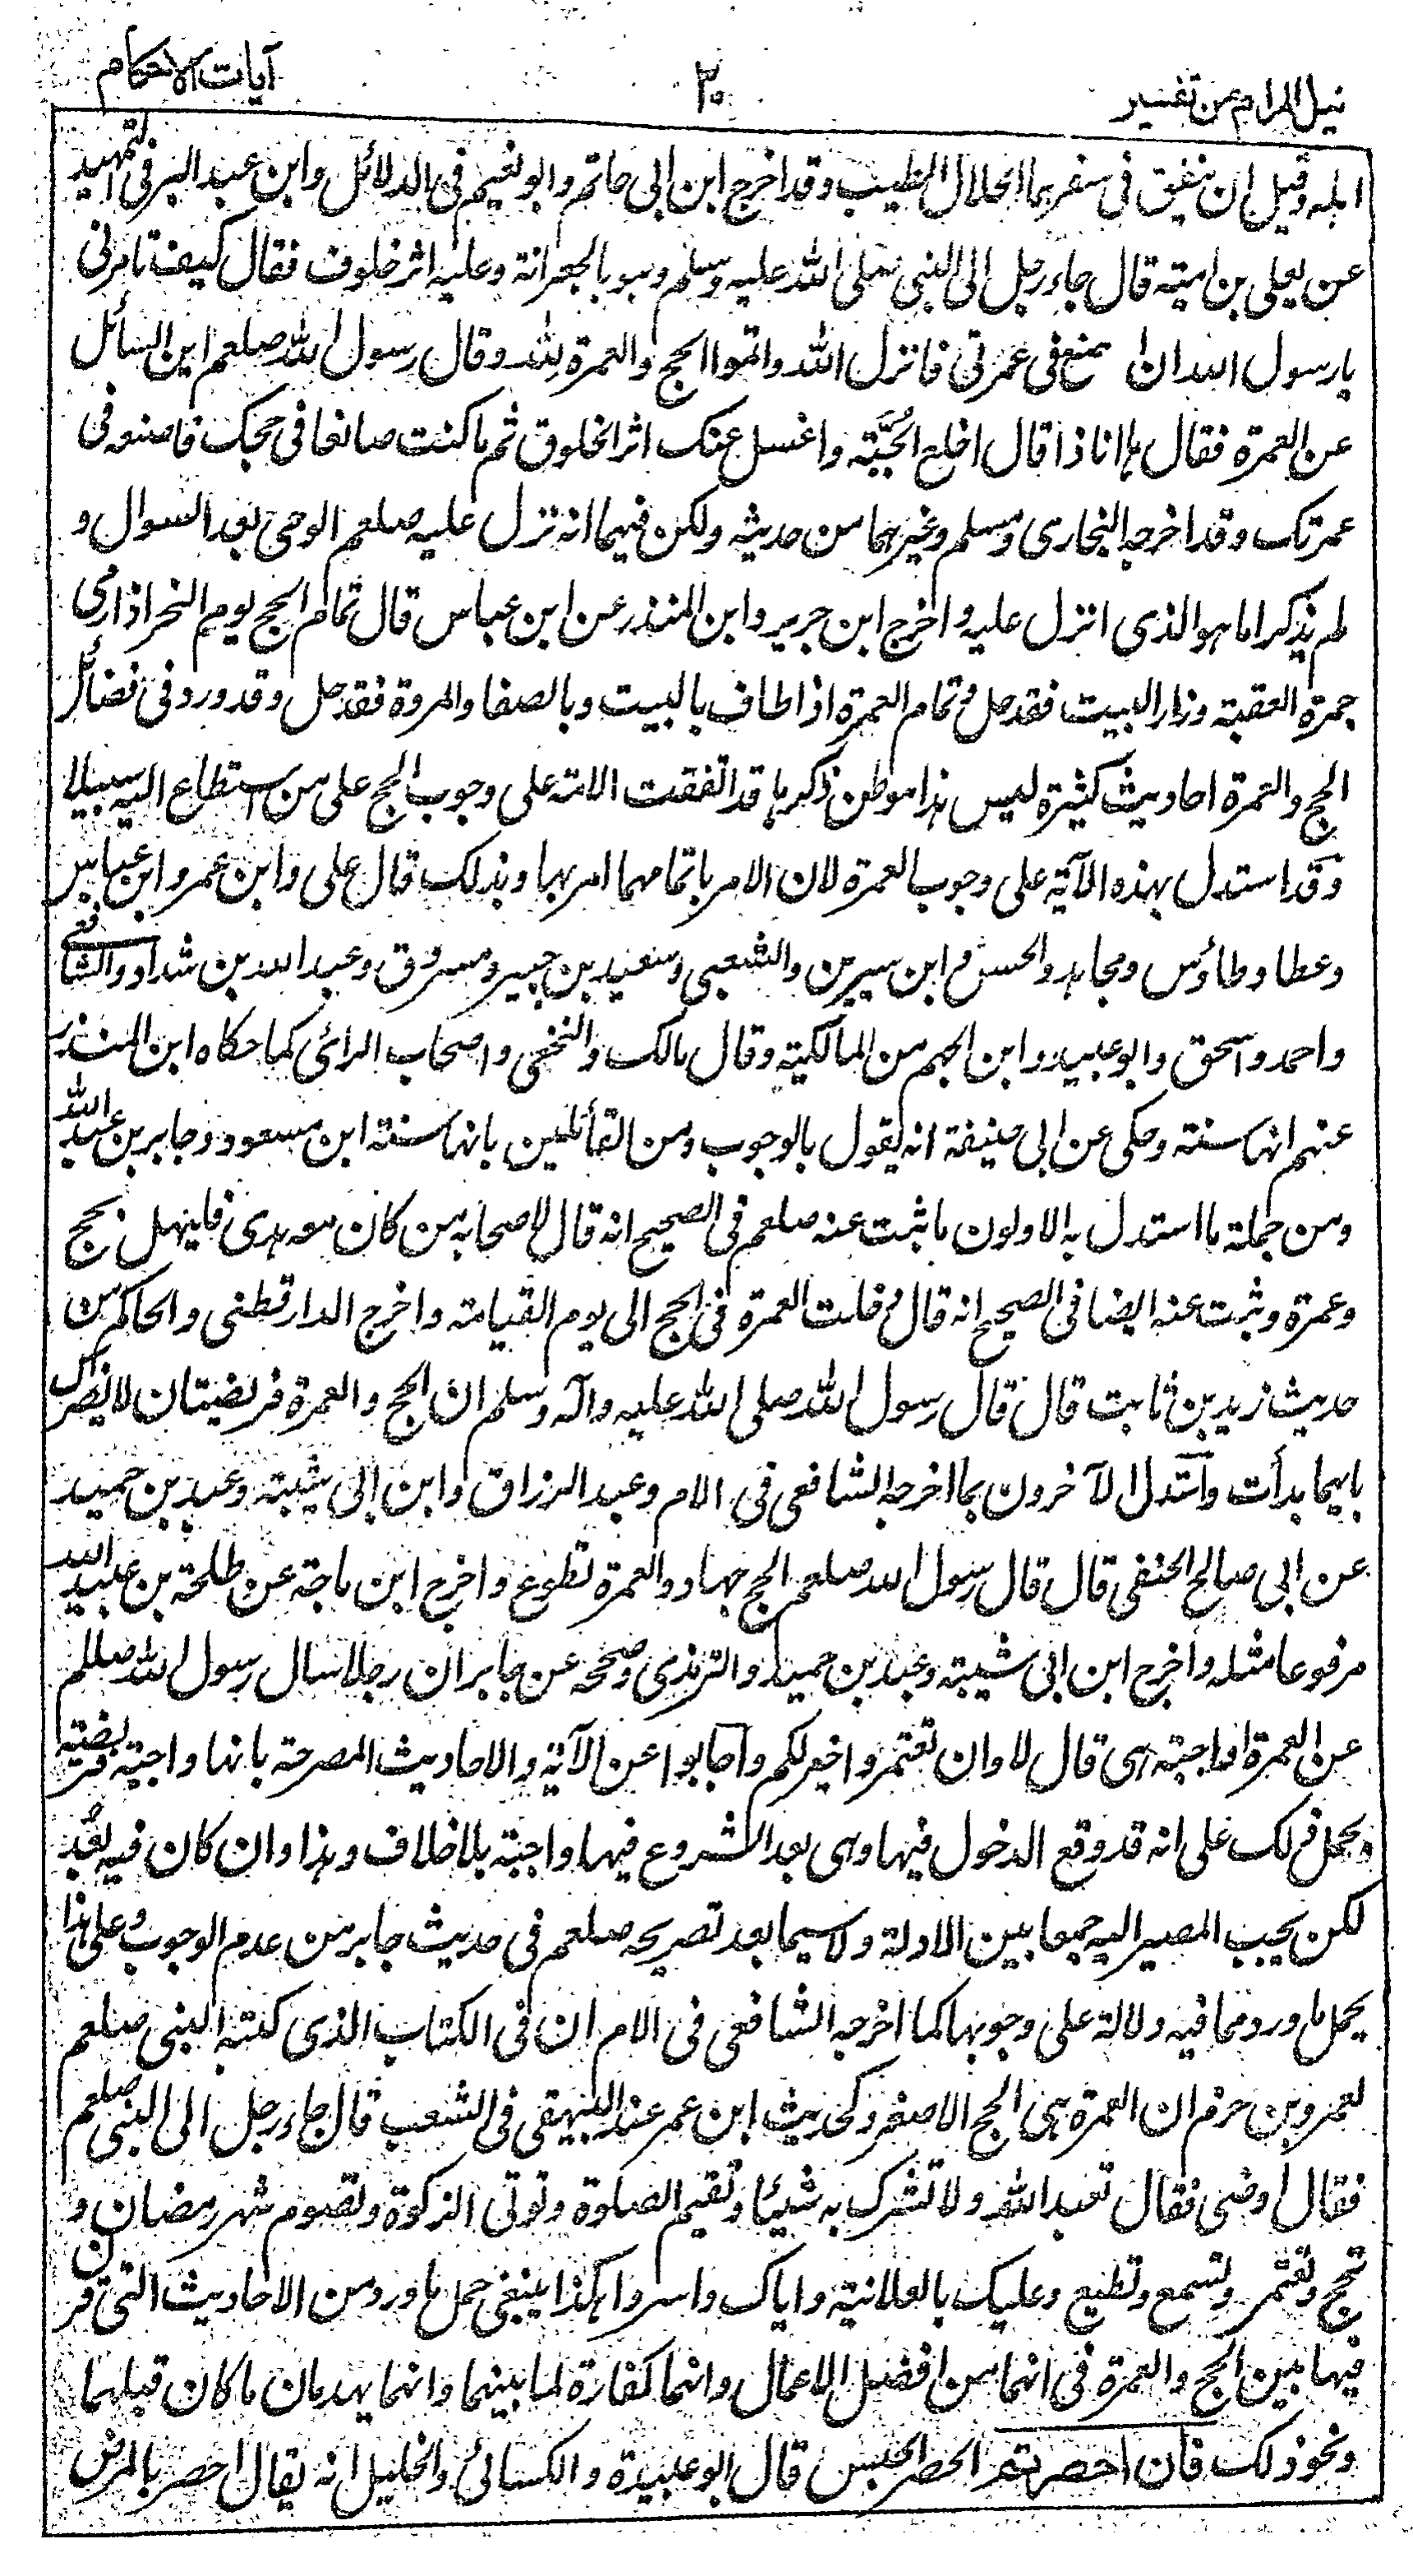 نيل المرام من تفسير ٢٠ آيات الاحكام
اهله وقيل ان ينفق فى سفرهما الحلال الطيب وقد اخرج ابن ابى حاتم وابو نعيم فى الدلائل وابن عبد البر فى التمهيد
عن يعلى بن امية قال جاء رجل الى النبى صلى الله عليه وسلم وهو بالجعرانة وعليه اثر خلوق فقال كيف تامرنى
يا رسول الله ان اصنع فى عمرتى فانزل الله واتموا الحج والعمرة لله وقال رسول الله صلعم اين السائل
عن العمرة فقال ها انا ذا قال اخلع الجبة واغسل عنك اثر الخلوق ثم ما كنت صانعا فى حجك فاصنعه فى
عمرتك وقد اخرجه البخارى ومسلم وغيرهما من حديثه ولكن فيهما انه نزل عليه صلعم الوحى بعد السوال و
لم يذكرا ما هو الذى انزل عليه واخرج ابن جرير وابن المنذر عن ابن عباس قال تمام الحج يوم النحر اذا رمى
جمرة العقبة وزار البيت فقد حل وتمام العمرة اذا طاف بالبيت وبالصفا والمروة فقد حل وقد ورد فى فضائل
الحج والعمرة احاديث كثيرة ليس هذا موطن ذكرها قد اتفقت الامة على وجوب الحج على من استطاع اليه سبيلا
وقد استدل بهذه الآية على وجوب العمرة لان الامر باتمامهما امر بها وبذلك قال على وابن عمر وابن عباس
وعطا وطاؤس ومجاهد والحسن وابن سيرين والشعبى وسعيد بن جبير ومسروق وعبد الله بن شداد والشافعى
واحمد واسحق وابو عبيد وابن الجهم من المالكية وقال مالك والنخعى واصحاب الرائى كما حكاه ابن المنذر
عنهم انها سنة وحكى عن ابى حنيفة انه يقول بالوجوب ومن القائلين بانها سنة ابن مسعود وجابر بن عبد الله
ومن جملة ما استدل به الاولون ما ثبت عنه صلعم فى الصحيح انه قال لاصحابه من كان معه هدى فليهل بحج
وعمرة وثبت عنه ايضا فى الصحيح انه قال دخلت العمرة فى الحج الى يوم القيامة واخرج الدارقطنى والحاكم من
حديث زيد بن ثابت قال قال رسول الله صلى الله عليه وآله وسلم ان الحج والعمرة فريضتان لا يضرك
بايهما بدأت واستدل الآخرون بما اخرجه الشافعى فى الام وعبد الرزاق وابن ابى شيبة وعبد بن حميد
عن ابى صالح الحنفى قال قال رسول الله صلعم الحج جهاد والعمرة تطوع واخرج ابن ماجة عن طلحة بن عبيد الله
مرفوعا مثله واخرج ابن ابى شيبة وعبد بن حميد والترمذى وصححه عن جابر ان رجلا سال رسول الله صللم
عن العمرة اواجبة هى قال لا وان تعتمروا خير لكم واجابوا عن الآية والاحاديث المصرحة بانها واجبة فريضة
بحمل ذلك على انه قد وقع الدخول فيها وهى بعد الشروع فيها واجبة بلا خلاف وهذا وان كان فيه بُعد
لكن يجب المصير اليه جمعا بين الادلة ولا سيما بعد تصريحه صلعم فى حديث جابر من عدم الوجوب وعلى هذا
يحمل ما ورد مما فيه دلالة على وجوبها كما اخرجه الشافعى فى الام ان فى الكتاب الذى كتبه النبى صلعم
لعمرو بن حزم ان العمرة هى الحج الاصغر وكحديث ابن عمر عند البيهقى فى الشعب قال جاء رجل الى النبى صلعم
فقال اوصنى فقال تعبد الله ولا تشرك به شيئا وتقيم الصلوة وتوتى الزكوة وتصوم شهر رمضان و
تحج وتعتمر وتسمع وتطيع وعليك بالعلانية واياك والسر وهكذا ينبغى حمل ما ورد من الاحاديث التى قرن
فيها بين الحج والعمرة فى انهما من افضل الاعمال وانهما كفارة لما بينهما وانهما يهدمان ما كان قبلهما
ونحو ذلك فان احصرتم الحصر الحبس قال ابو عبيدة والكسائى والخليل انه يقال احصر بالمرض